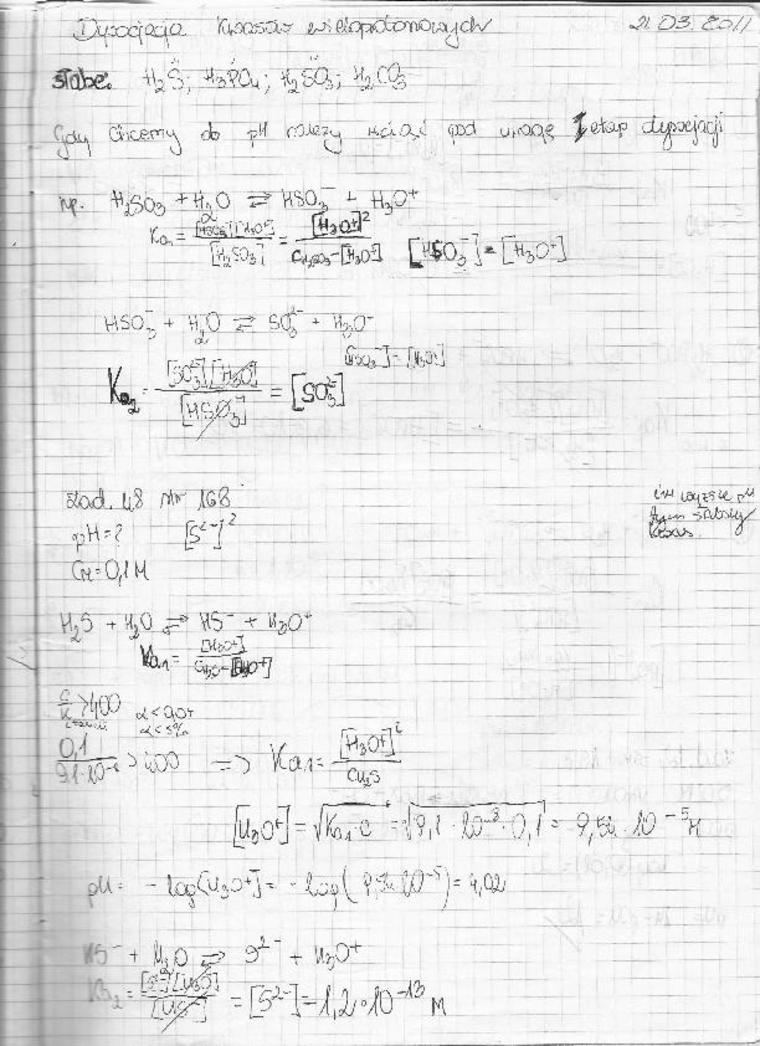 Dysocjacja kwasów wieloprotonowych 21.03.2011
słabe: H₂S; H₃PO₄; H₂SO₃; H₂CO₃
Gdy chcemy do pH należy wziąść pod uwagę I etap dysocjacji
np. H₂SO₃ + H₂O ⇌ HSO₃⁻ + H₃O⁺
Ka₁ = [HSO₃⁻][H₃O⁺] / [H₂SO₃] = [H₃O⁺]² / (C H₂SO₃ − [H₃O⁺]) [HSO₃⁻] = [H₃O⁺]
HSO₃⁻ + H₂O ⇌ SO₃²⁻ + H₃O⁻
[HSO₃⁻] = [H₃O⁺]
Ka₂ = [SO₃²⁻][H₃O] / [HSO₃⁻] = [SO₃²⁻]
zad. 48 str 168
im wyższe pH
tym słabszy
kwas.
pH = ? [S²⁻]²
Cм = 0,1 M
H₂S + H₂O ⇌ HS⁻ + H₃O⁺
Ka₁ = [H₃O⁺] / [H₃O⁺]
C/K > 400 α < 0,05
α < 5%
0,1 / 9,1·10⁻⁸ > 400 => Ka₁ = [H₃O⁺]² / CH₂S
[H₃O⁺] = √(Ka₁·C) = √(9,1 · 10⁻⁸ · 0,1) = 9,54 · 10⁻⁵ M
pH = − log[H₃O⁺] = − log(9,54·10⁻⁵) = 4,02
HS⁻ + H₂O ⇌ S²⁻ + H₃O⁺
Ka₂ = [S²⁻][H₃O] / [HS⁻] = [S²⁻] = 1,2·10⁻¹³ M